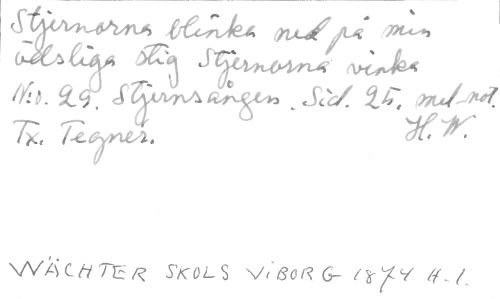 Stjernorna blinka ned på min
ödsliga stig Stjernorna vinka
N:o. 29. Stjernsången. Sid. 25. mel-not.
Tx. Tegnér. H. W.
WÄCHTER SKOLS VIBORG 1874 H-1.